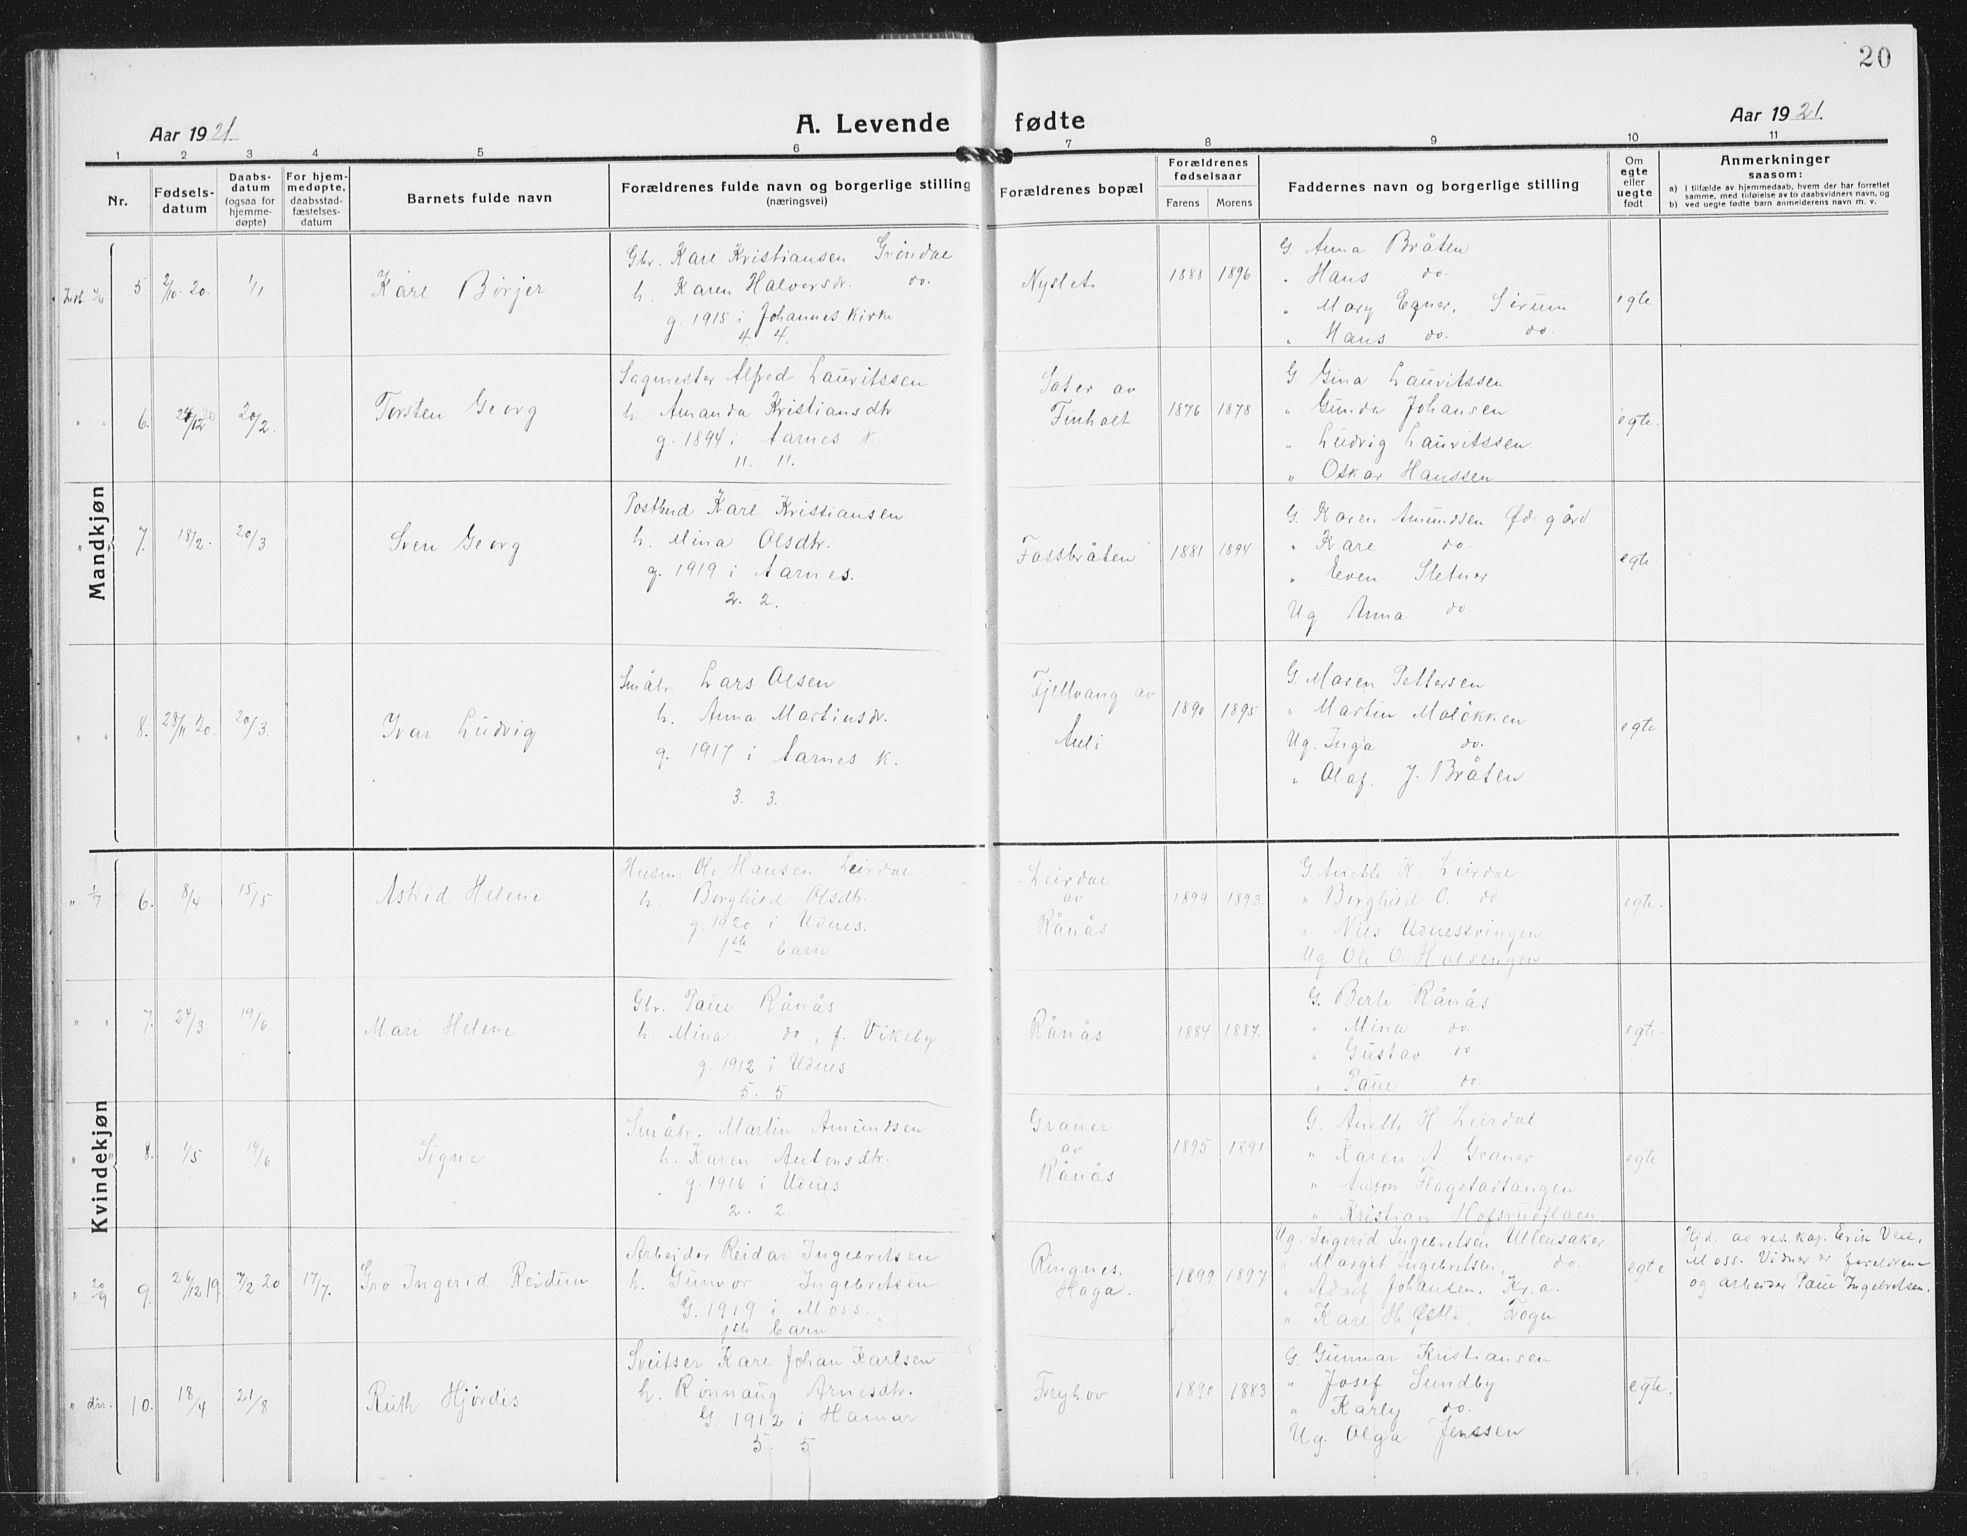 20
Aar 1921.
A. Levende fødte
Aar 1921.
1 2 3 4 5 6 7 8 9 10 11
Nr.
Fødsels-
datum
Daabs-
datum
(ogsaa for
hjemme-
døpte)
For hjem-
medøpte,
daabsstad-
fæstelses-
datum
Barnets fulde navn
Forældrenes fulde navn og borgerlige stilling
(næringsvei)
Forældrenes bopæl
Forældrenes
fødselsaar
Farens Morens
Faddernes navn og borgerlige stilling
Om
egte
eller
uegte
født
Anmerkninger
saasom:
a) i tilfælde av hjemmedaab, hvem der har forrettet
samme, med tilføielse av to daabsvidners navn, og
b) ved uegte fødte barn anmelderens navn m. v.
Mandkjøn
5. 2/10 20. 1/1 Karl Børjer
Gbr. Karl Kristiansen Grøndal
h. Karen Halvorsdr. do.
g. 1915 i Johannes kirke
4. 4.
Nyslet. 1888 1896
G. Anna Bråten
" Hans do.
" Mary Egner, Sørum
" Hans do. do.
egte
6. 24/12 20 20/2. Torsten Georg
Sagmester Alfred Lauritssen
h. Amanda Kristiansdtr
g. 1894 i Aarnes K
11. 11.
Sater av
Finholt
1876 1878
G. Gina Lauritssen
" Gunda Johansen
" Ludvig Lauritssen
" Oskar Hanssen
egte.
7. 18/2. 20/3 Sven Georg
Postbud Karl Kristiansen
h. Mina Olsdtr.
g. 1919 i Aarnes.
2. 2.
Fossbråten 1881 1894
G. Karen Amundsen Ødegård
" Karl do.
" Even Sletner
Ug. Anna do.
egte.
8. 28/11 20. 20/3. Ivar Ludvig
Småbr. Lars Olsen
h. Anna Martinsdr.
g. 1917 i Aarnes K.
3. 3.
Fjellvang av
Auli
1890 1895
G. Maren Pettersen
" Martin Moløkken
Ug. Inga do.
" Olaf J. Bråten
egte
Kvindekjøn
" 1/7 6. 8/4 15/5 Astrid Helene
Husm. Ole Hansen Leirdal
h. Borghild Olsdtr.
g. 1920 i Udnes.
1ste barn
Leirdal
av
Rånås
1899 1893.
G. Anette K. Leirdal
" Borghild O. do.
" Nils Udnessvingen
Ug. Ole O. Holsengen
egte.
" " 7. 24/3 19/6 Mari Helene
Gbr. Paul Rånås
h. Mina do, f. Vikeby
g. 1912 i Udnes
5. 5
Rånås 1884 1887.
G. Berte Rånås
" Mina do.
" Gustav do
" Paul do.
egte.
" " 8. 1/5 19/6 Signe
Småbr. Martin Amundsen
h. Karen Antonsdtr.
g. 1916 i Udnes
2. 2.
Graner
av
Rånås
1895 1891
G. Anette H. Leirdal
" Karen A. Graner
" Anton Flagstadtangen
" Kristian Hofsrudflaen
egte.
" 20/9 9. 26/12 19. 7/2 20 17/7. Gro Ingerid Reidun
Arbeider Reidar Ingebretsen
h. Gunvor Ingebretsen
G. 1919 i Moss.
1ste barn
Ringnes.
Haga.
1899 1897
Ug. Ingerid Ingebretsen Ullensaker
" Margit Ingebretsen, do.
" Adolf Johansen, Kr.a.
" Karl H. Østli, Fogn
egte
Hjd. av res. kap. Erik Vese,
Moss. Vidner er foreldrene
og arbeider Paul Ingebretsen.
" do. 10. 18/4 21/8 Ruth Hjørdis
Sveitser Karl Johan Karlsen
h. Rønnaug Arnesdtr.
G. 1912 i Hamar
5. 5
Freyhov 1890 1883
G. Gunnar Kristiansen
" Josef Sundby
" Karly do.
Ug. Olga Jenssen
egte.